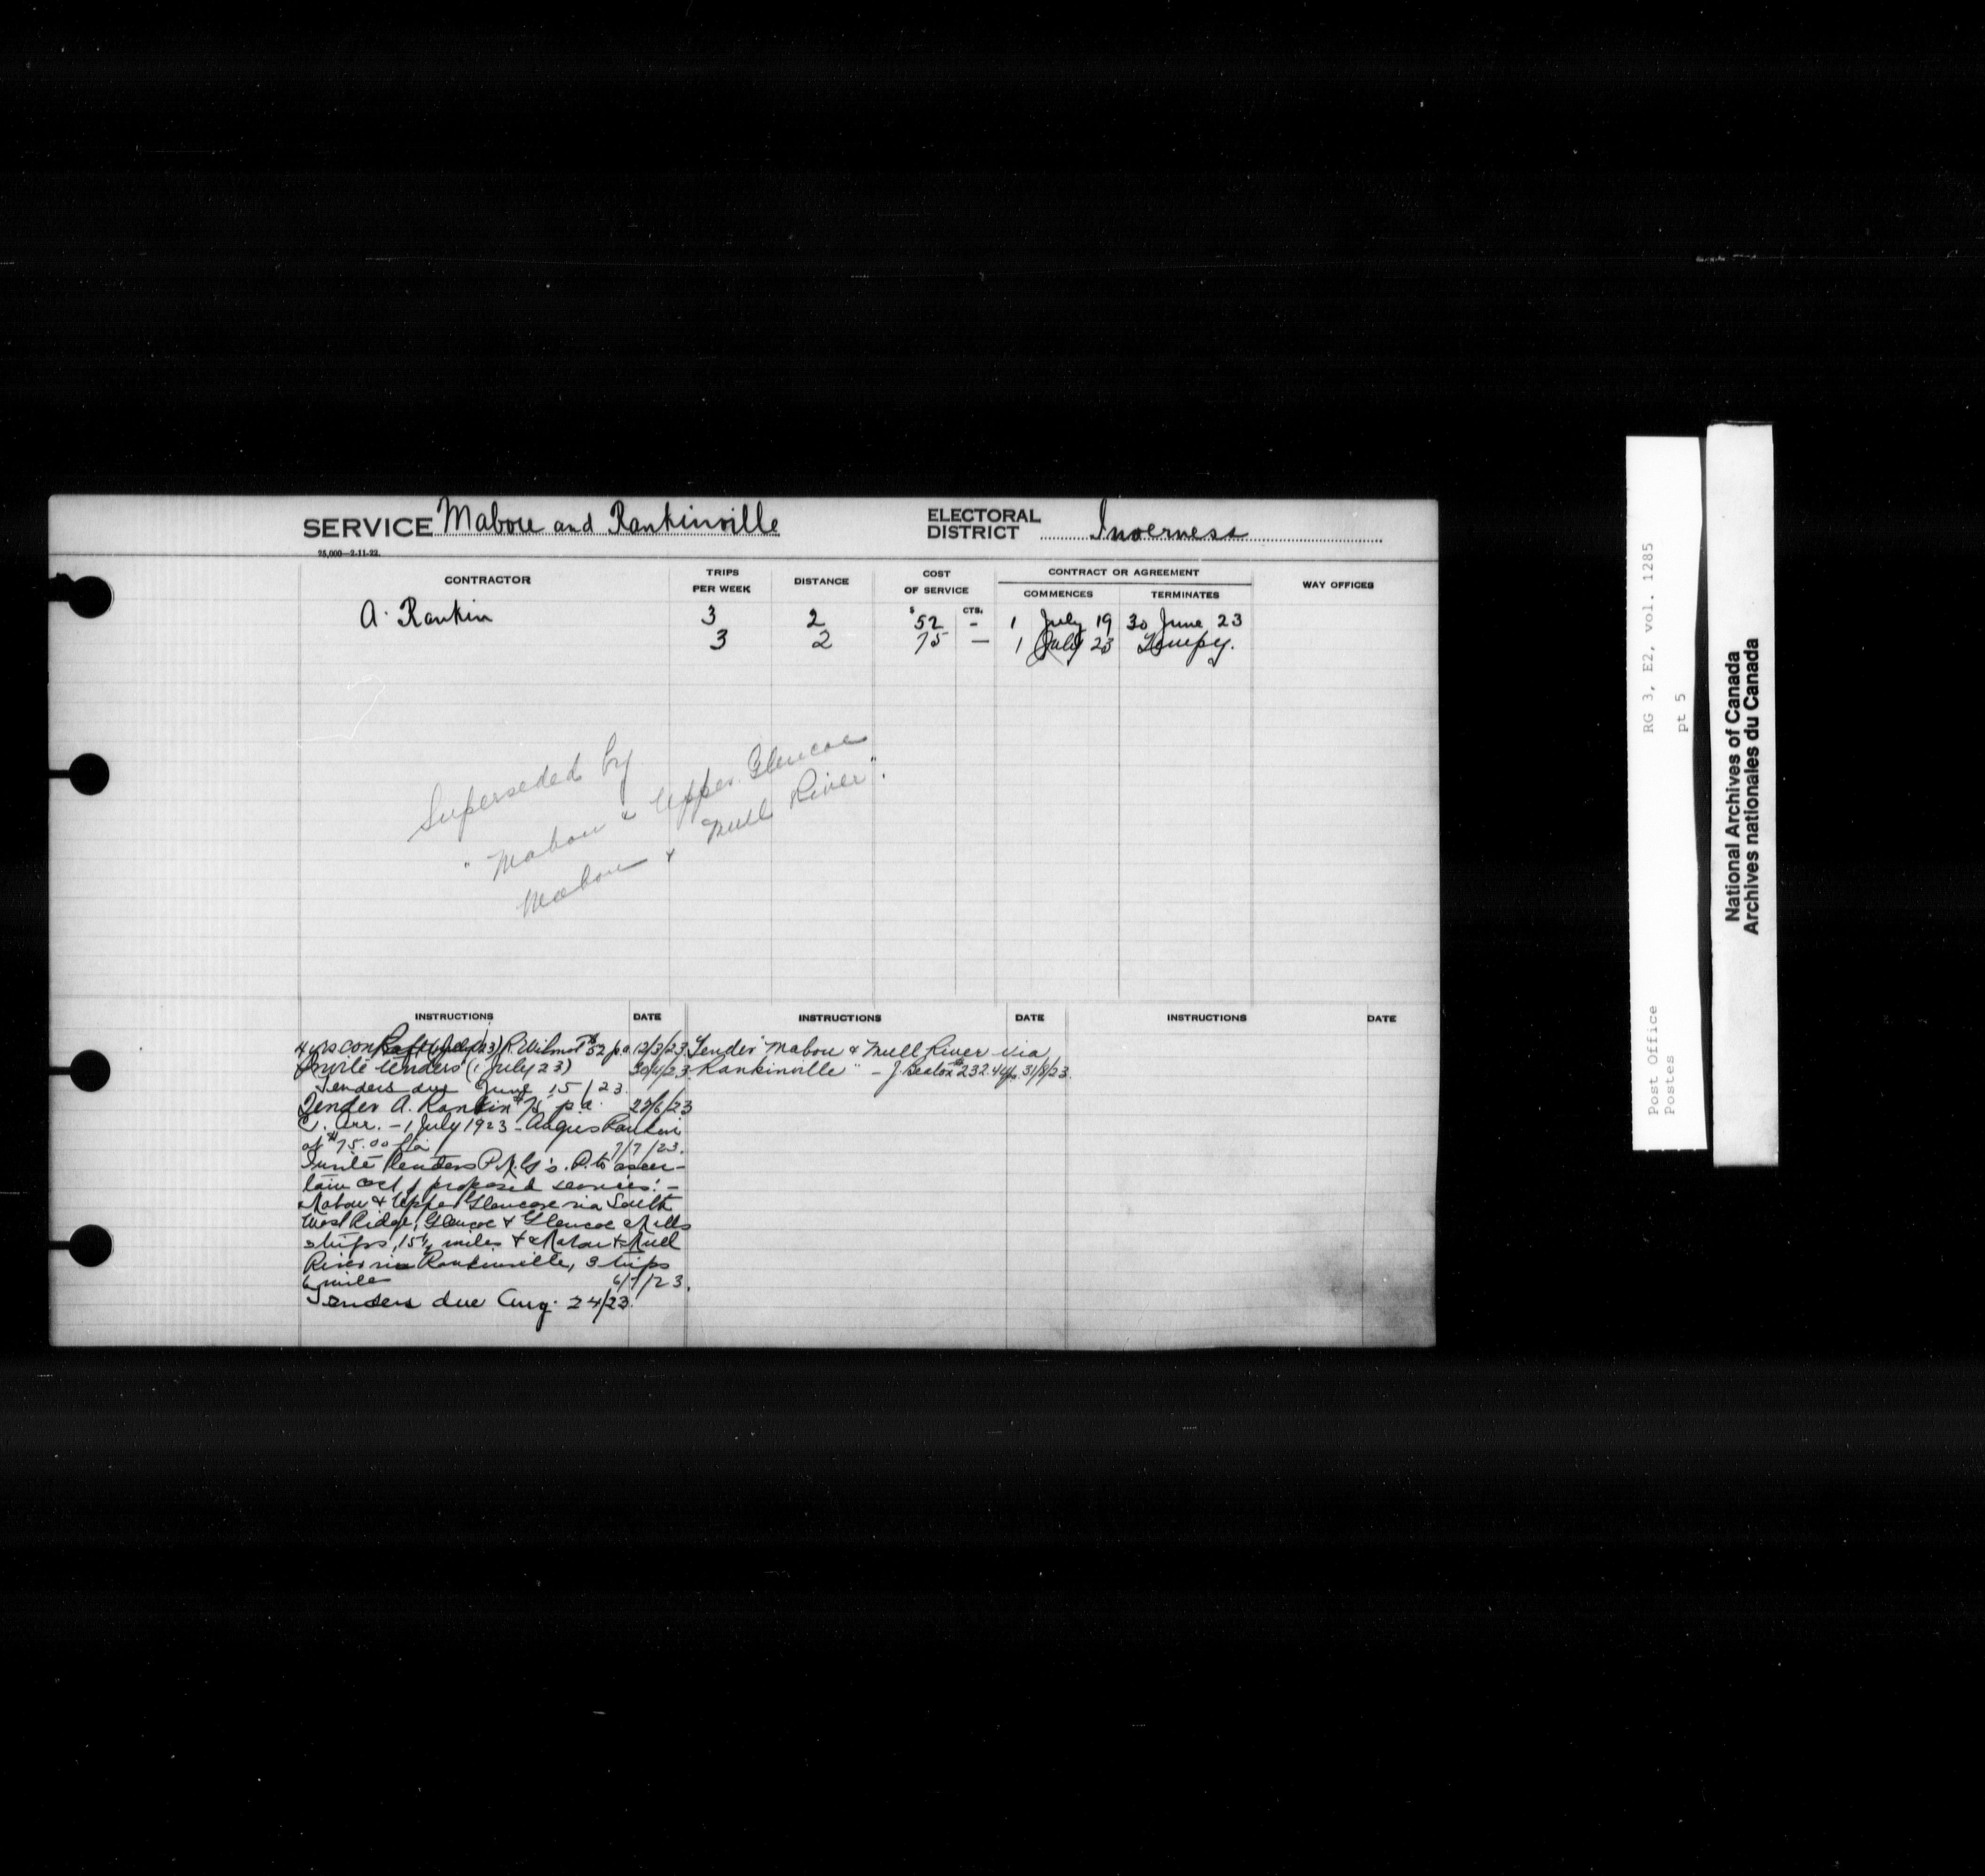 SERVICE Mabou and Rankinville ELECTORAL DISTRICT Inverness
25,000—2-11-22.
CONTRACTOR TRIPS PER WEEK DISTANCE COST OF SERVICE CONTRACT OR AGREEMENT WAY OFFICES
$ CTS. COMMENCES TERMINATES
A. Rankin 3 2 52 - 1 July 19 30 June 23
3 2 75 — 1 July 23 Tempy.
Superseded by
"Mabou & Upper Glencoe
Mabou & Mull River".
INSTRUCTIONS DATE INSTRUCTIONS DATE INSTRUCTIONS DATE
4 yrs contract (1 July 23) R. Wilmot $52 p.a. 12/3/23
Invite tenders (1 July 23) 30/4/23
Tenders due June 15/23
Tender A. Rankin $75 p.a. 22/6/23
Arr. - 1 July 1923 - Angus Rankin
at $75.00 p.a. 7/7/23.
Invite tenders P.M.G's. to ascer-
tain cost of proposed services: -
Mabou & Upper Glencoe via South
West Ridge, Glencoe & Glencoe Mills
3 trips, 15½ miles & Mabou & Mull
River via Rankinville, 3 trips
6 miles 6/7/23.
Tenders due Aug. 24/23.
Tender "Mabou & Mull River via
Rankinville" - J. Beaton $232.44 31/8/23.
RG 3, E2, vol. 1285
pt 5
Post Office
Postes
National Archives of Canada
Archives nationales du Canada